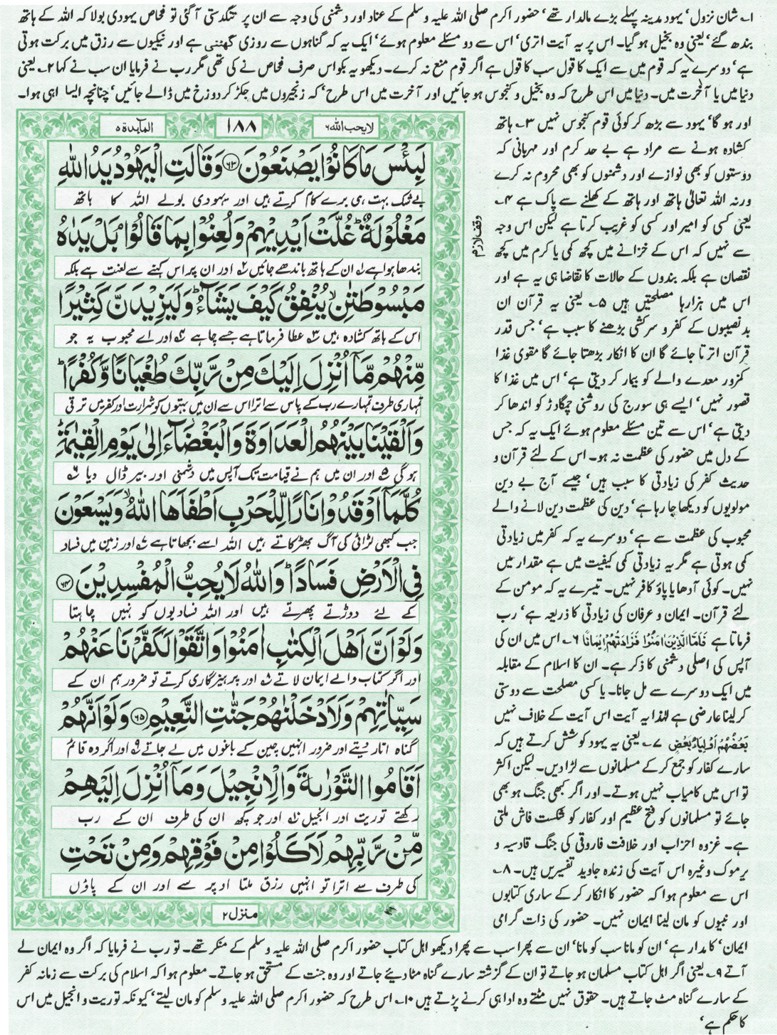 ۱۔ شان نزول‘ یہود مدینہ پہلے بڑے مالدار تھے‘ حضور اکرم صلی اللہ علیہ وسلم کے عناد اور دشمنی کی وجہ سے ان پر تنگدستی آ گئی تو فحاص یہودی بولا کہ اللہ کے ہاتھ
بندھ گئے‘ یعنی وہ بخیل ہو گیا۔ اس پر یہ آیت اتری‘ اس سے دو مسئلے معلوم ہوئے‘ ایک یہ کہ گناہوں سے روزی گھٹتی ہے اور نیکیوں سے رزق میں برکت ہوتی
ہے‘ دوسرے یہ کہ قوم میں سے ایک کا قول سب کا قول ہے اگر قوم منع نہ کرے۔ دیکھو یہ بکواس صرف فحاص نے کی تھی مگر رب نے فرمایا ان سب نے کہا ۲۔ یعنی
دنیا میں یا آخرت میں۔ دنیا میں اس طرح کہ وہ بخیل و کنجوس ہو جائیں اور آخرت میں اس طرح‘ کہ زنجیروں میں جکڑ کر دوزخ میں ڈالے جائیں‘ چنانچہ ایسا ہی ہوا۔
اور ہو گا‘ یہود سے بڑھ کر کوئی قوم کنجوس نہیں ۳۔ ہاتھ
کشادہ ہونے سے مراد ہے بے حد کرم اور مہربانی کہ
دوستوں کو بھی نوازے اور دشمنوں کو بھی محروم نہ کرے
ورنہ اللہ تعالیٰ ہاتھ اور ہاتھ کے کھلنے سے پاک ہے ۴۔
یعنی کسی کو امیر اور کسی کو غریب کرتا ہے لیکن اس وجہ
سے نہیں کہ اس کے خزانے میں کچھ کمی یا کرم میں کچھ
نقصان ہے بلکہ بندوں کے حالات کا تقاضا ہی یہ ہے اور
اس میں ہزارہا مصلحتیں ہیں ۵۔ یعنی یہ قرآن ان
بدنصیبوں کے کفر و سرکشی بڑھنے کا سبب ہے‘ جس قدر
قرآن اترتا جائے گا ان کا انکار بڑھتا جائے گا مقوی غذا
کمزور معدے والے کو بیمار کر دیتی ہے‘ اس میں غذا کا
قصور نہیں‘ ایسے ہی سورج کی روشنی چمگادڑ کو اندھا کر
دیتی ہے‘ اس سے تین مسئلے معلوم ہوئے ایک یہ کہ جس
کے دل میں حضور کی عظمت نہ ہو۔ اس کے لئے قرآن و
حدیث کفر کی زیادتی کا سبب ہیں‘ جیسے آج بے دین
مولویوں کو دیکھا جا رہا ہے‘ دین کی عظمت دین لانے والے
محبوب کی عظمت سے ہے‘ دوسرے یہ کہ کفر میں زیادتی
کمی ہوتی ہے مگر یہ زیادتی کمی کیفیت میں ہے مقدار میں
نہیں۔ کوئی آدھا یا پاؤ کافر نہیں۔ تیسرے یہ کہ مومن کے
لئے قرآن۔ ایمان و عرفان کی زیادتی کا ذریعہ ہے‘ رب
فرماتا ہے فَاَمَّا الَّذِیْنَ اٰمَنُوْا فَزَادَتْهُمْ اِیْمَانًا ۶۔ اس میں ان کی
آپس کی اصلی دشمنی کا ذکر ہے۔ ان کا اسلام کے مقابلہ
میں ایک دوسرے سے مل جانا۔ یا کسی مصلحت سے دوستی
کر لینا عارضی ہے لہٰذا یہ آیت اس آیت کے خلاف نہیں
بَعْضُهُمْ اَوْلِیَآءُ بَعْضٍ ۷۔ یعنی یہ یہود کوشش کرتے ہیں کہ
سارے کفار کو جمع کر کے مسلمانوں سے لڑا دیں۔ لیکن اکثر
تو اس میں کامیاب نہیں ہوتے۔ اور اگر کبھی جنگ ہو بھی
جائے تو مسلمانوں کو فتح عظیم اور کفار کو شکست فاش ملتی
ہے۔ غزوہ احزاب اور خلافت فاروقی کی جنگ قادسیہ و
یرموک وغیرہ اس آیت کی زندہ جاوید تفسیریں ہیں۔ ۸۔
اس سے معلوم ہوا کہ حضور کا انکار کر کے ساری کتابوں
اور نبیوں کو مان لینا ایمان نہیں۔ حضور کی ذات گرامی
وقف لازم
لا یحب اللہ ۶
۱۸۸
المآئدۃ ۵
لَبِئْسَ مَا كَانُوْا یَصْنَعُوْنَ ﴿۶۳﴾ وَقَالَتِ الْیَهُوْدُ یَدُ اللّٰهِ
بے شک بہت ہی برے کام کرتے ہیں اور یہودی بولے اللہ کا ہاتھ
مَغْلُوْلَةٌ ؕ غُلَّتْ اَیْدِیْهِمْ وَلُعِنُوْا بِمَا قَالُوْا ۘ بَلْ یَدٰهُ
بندھا ہوا ہے ۱ ان کے ہاتھ باندھے جائیں ۲ اور ان پر اس کہنے سے لعنت ہے بلکہ
مَبْسُوْطَتٰنِ ۙ یُنْفِقُ كَیْفَ یَشَآءُ ؕ وَلَیَزِیْدَنَّ كَثِیْرًا
اس کے ہاتھ کشادہ ہیں ۳ عطا فرماتا ہے جسے چاہے ۴ اور اے محبوب یہ جو
مِّنْهُمْ مَّاۤ اُنْزِلَ اِلَیْكَ مِنْ رَّبِّكَ طُغْیَانًا وَّكُفْرًا ؕ
تمہاری طرف تمہارے رب کے پاس سے اترا اس سے ان میں بہتوں کو شرارت اور کفر میں ترقی
وَاَلْقَیْنَا بَیْنَهُمُ الْعَدَاوَةَ وَالْبَغْضَآءَ اِلٰى یَوْمِ الْقِیٰمَةِ ؕ
ہو گی ۵ اور ان میں ہم نے قیامت تک آپس میں دشمنی اور بیر ڈال دیا ۶
كُلَّمَاۤ اَوْقَدُوْا نَارًا لِّلْحَرْبِ اَطْفَاَهَا اللّٰهُ ۙ وَیَسْعَوْنَ
جب کبھی لڑائی کی آگ بھڑکاتے ہیں اللہ اسے بجھاتا ہے ۷ اور زمین میں فساد
فِی الْاَرْضِ فَسَادًا ؕ وَاللّٰهُ لَا یُحِبُّ الْمُفْسِدِیْنَ ﴿۶۴﴾
کے لئے دوڑتے پھرتے ہیں اور اللہ فسادیوں کو نہیں چاہتا
وَلَوْ اَنَّ اَهْلَ الْكِتٰبِ اٰمَنُوْا وَاتَّقَوْا لَكَفَّرْنَا عَنْهُمْ
اور اگر کتاب والے ایمان لاتے ۸ اور پرہیزگاری کرتے تو ضرور ہم ان کے
سَیِّاٰتِهِمْ وَلَاَدْخَلْنٰهُمْ جَنّٰتِ النَّعِیْمِ ﴿۶۵﴾ وَلَوْ اَنَّهُمْ
گناہ اتار دیتے اور ضرور انہیں چین کے باغوں میں لے جاتے ۹ اور اگر وہ قائم
اَقَامُوا التَّوْرٰىةَ وَالْاِنْجِیْلَ وَمَاۤ اُنْزِلَ اِلَیْهِمْ
رکھتے توریت اور انجیل ۱۰ اور جو کچھ ان کی طرف ان کے رب
مِّنْ رَّبِّهِمْ لَاَكَلُوْا مِنْ فَوْقِهِمْ وَمِنْ تَحْتِ
کی طرف سے اترا تو انہیں رزق ملتا اوپر سے اور ان کے پاؤں
منزل ۲
ایمان‘ کا مدار ہے‘ ان کو مانا سب کو مانا‘ ان سے پھرا سب سے پھرا دیکھو اہل کتاب حضور اکرم صلی اللہ علیہ وسلم کے منکر تھے۔ تو رب نے فرمایا کہ اگر وہ ایمان لے
آتے ۹۔ یعنی اگر اہل کتاب مسلمان ہو جاتے تو ان کے گزشتہ سارے گناہ مٹا دیئے جاتے اور وہ جنت کے مستحق ہو جاتے۔ معلوم ہوا کہ اسلام کی برکت سے زمانہ کفر
کے سارے گناہ مٹ جاتے ہیں۔ حقوق نہیں مٹتے وہ ادا ہی کرنے پڑتے ہیں ۱۰۔ اس طرح کہ حضور اکرم صلی اللہ علیہ وسلم کو مان لیتے‘ کیونکہ توریت و انجیل میں اس
کا حکم ہے‘